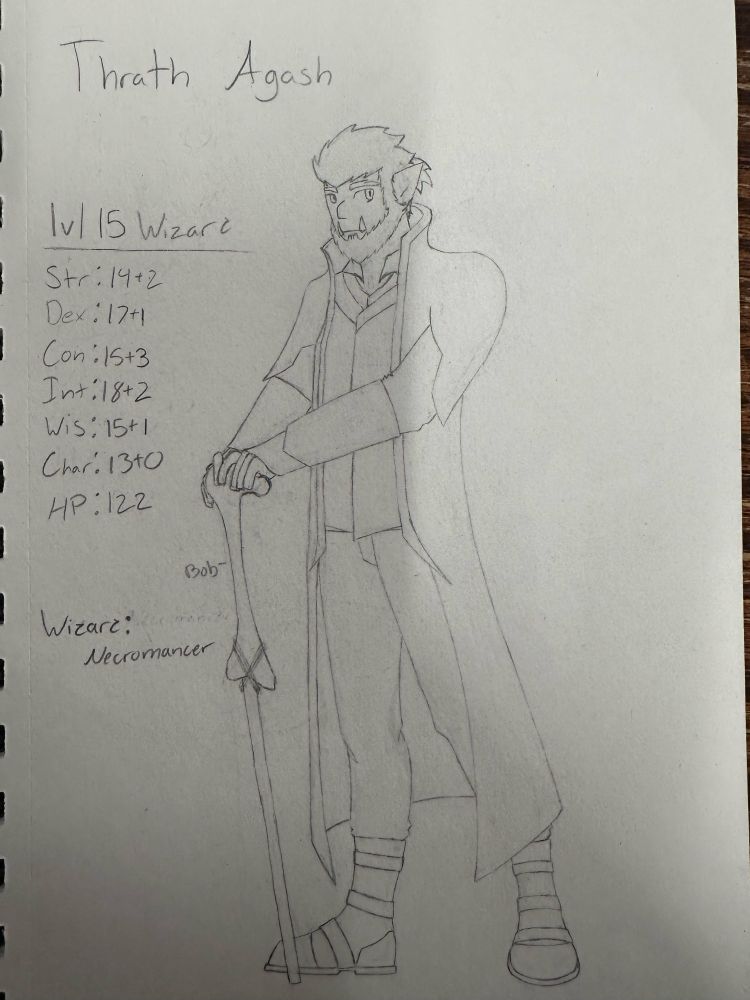 Thrath Agash
lvl 15 Wizarz
Str: 14+2
Dex: 17+1
Con: 15+3
Int: 18+2
Wis: 15+1
Char: 13+0
HP: 122
Bob-
Wizarz:
Necromancer